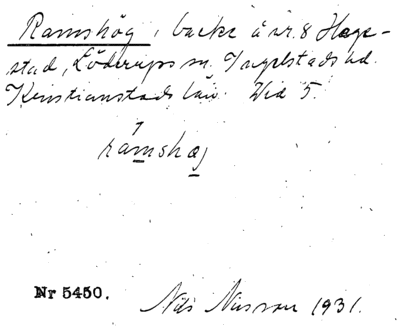 Ramshög, backe å nr. 8 Hage-
stad, Löderups sn. Ingelstads hd.
Kristianstads län. Wid 5.
ramshæj
Nr 5450.
Nils Nilsson 1931.